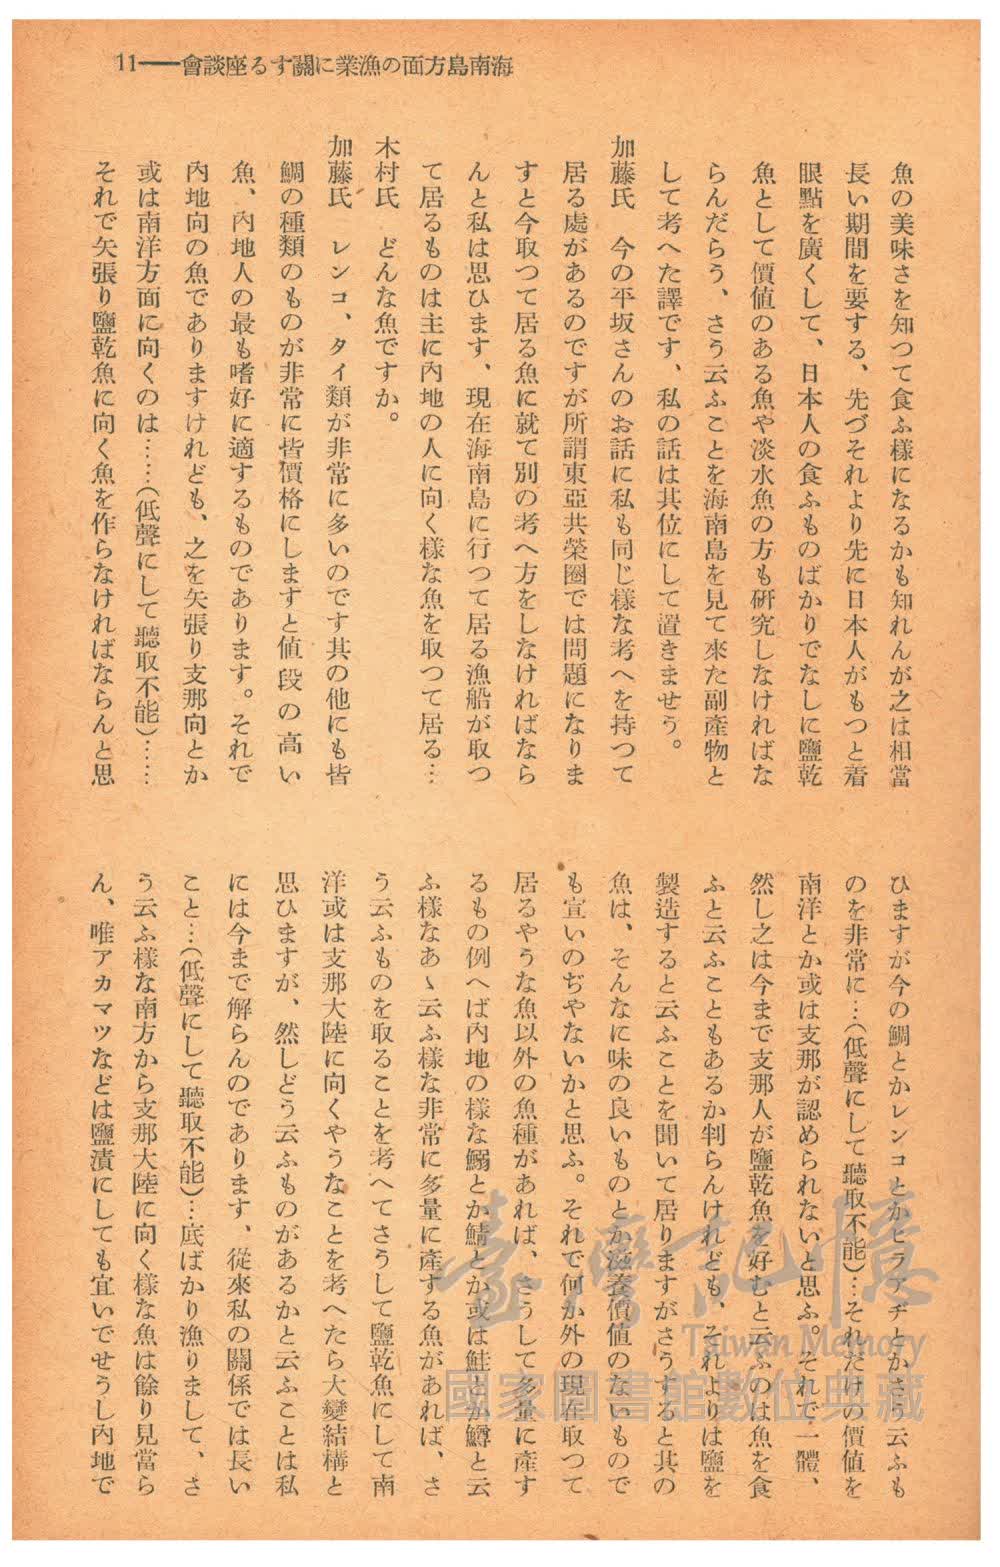 海南島方面の漁業に關する座談會━━11
魚の美味さを知つて食ふ樣になるかも知れんが之は相當
長い期間を要する、先づそれより先に日本人がもつと着
眼點を廣くして、日本人の食ふものばかりでなしに鹽乾
魚として價値のある魚や淡水魚の方も硏究しなければな
らんだらう、さう云ふことを海南島を見て來た副產物と
して考へた譯です、私の話は其位にして置きませう。
加藤氏　今の平坂さんのお話に私も同じ樣な考へを持つて
居る處があるのですが所謂東亞共榮圈では問題になりま
すと今取つて居る魚に就て別の考へ方をしなければなら
んと私は思ひます、現在海南島に行つて居る漁船が取つ
て居るものは主に內地の人に向く樣な魚を取つて居る…
木村氏　どんな魚ですか。
加藤氏　レンコ、タイ類が非常に多いのです其の他にも皆
鯛の種類のものが非常に皆價格にしますと値段の高い
魚、內地人の最も嗜好に適するものであります。それで
內地向の魚でありますけれども、之を矢張り支那向とか
或は南洋方面に向くのは……（低聲にして聽取不能）……
それで矢張り鹽乾魚に向く魚を作らなければならんと思
ひますが今の鯛とかレンコとかヒラアヂとかさう云ふも
のを非常に…（低聲にして聽取不能）…それだけの價値を
南洋とか或は支那が認められないと思ふ。それで一體、
然し之は今まで支那人が鹽乾魚を好むと云ふのは魚を食
ふと云ふこともあるか判らんけれども、それよりは鹽を
製造すると云ふことを聞いて居りますがさうすると其の
魚は、そんなに味の良いものとか滋養價値のないもので
も宜いのぢやないかと思ふ。それで何か外の現在取つて
居るやうな魚以外の魚種があれば、さうして多量に產す
るもの例へば內地の樣な鰯とか鯖とか或は鮭とか鱒と云
ふ樣なあゝ云ふ樣な非常に多量に產する魚があれば、さ
う云ふものを取ることを考へてさうして鹽乾魚にして南
洋或は支那大陸に向くやうなことを考へたら大變結構と
思ひますが、然しどう云ふものがあるかと云ふことは私
には今まで解らんのであります、從來私の關係では長い
こと…（低聲にして聽取不能）…底ばかり漁りまして、さ
う云ふ樣な南方から支那大陸に向く樣な魚は餘り見當ら
ん、唯アカマツなどは鹽漬にしても宜いでせうし內地で
臺灣記憶
Taiwan Memory
國家圖書館數位典藏